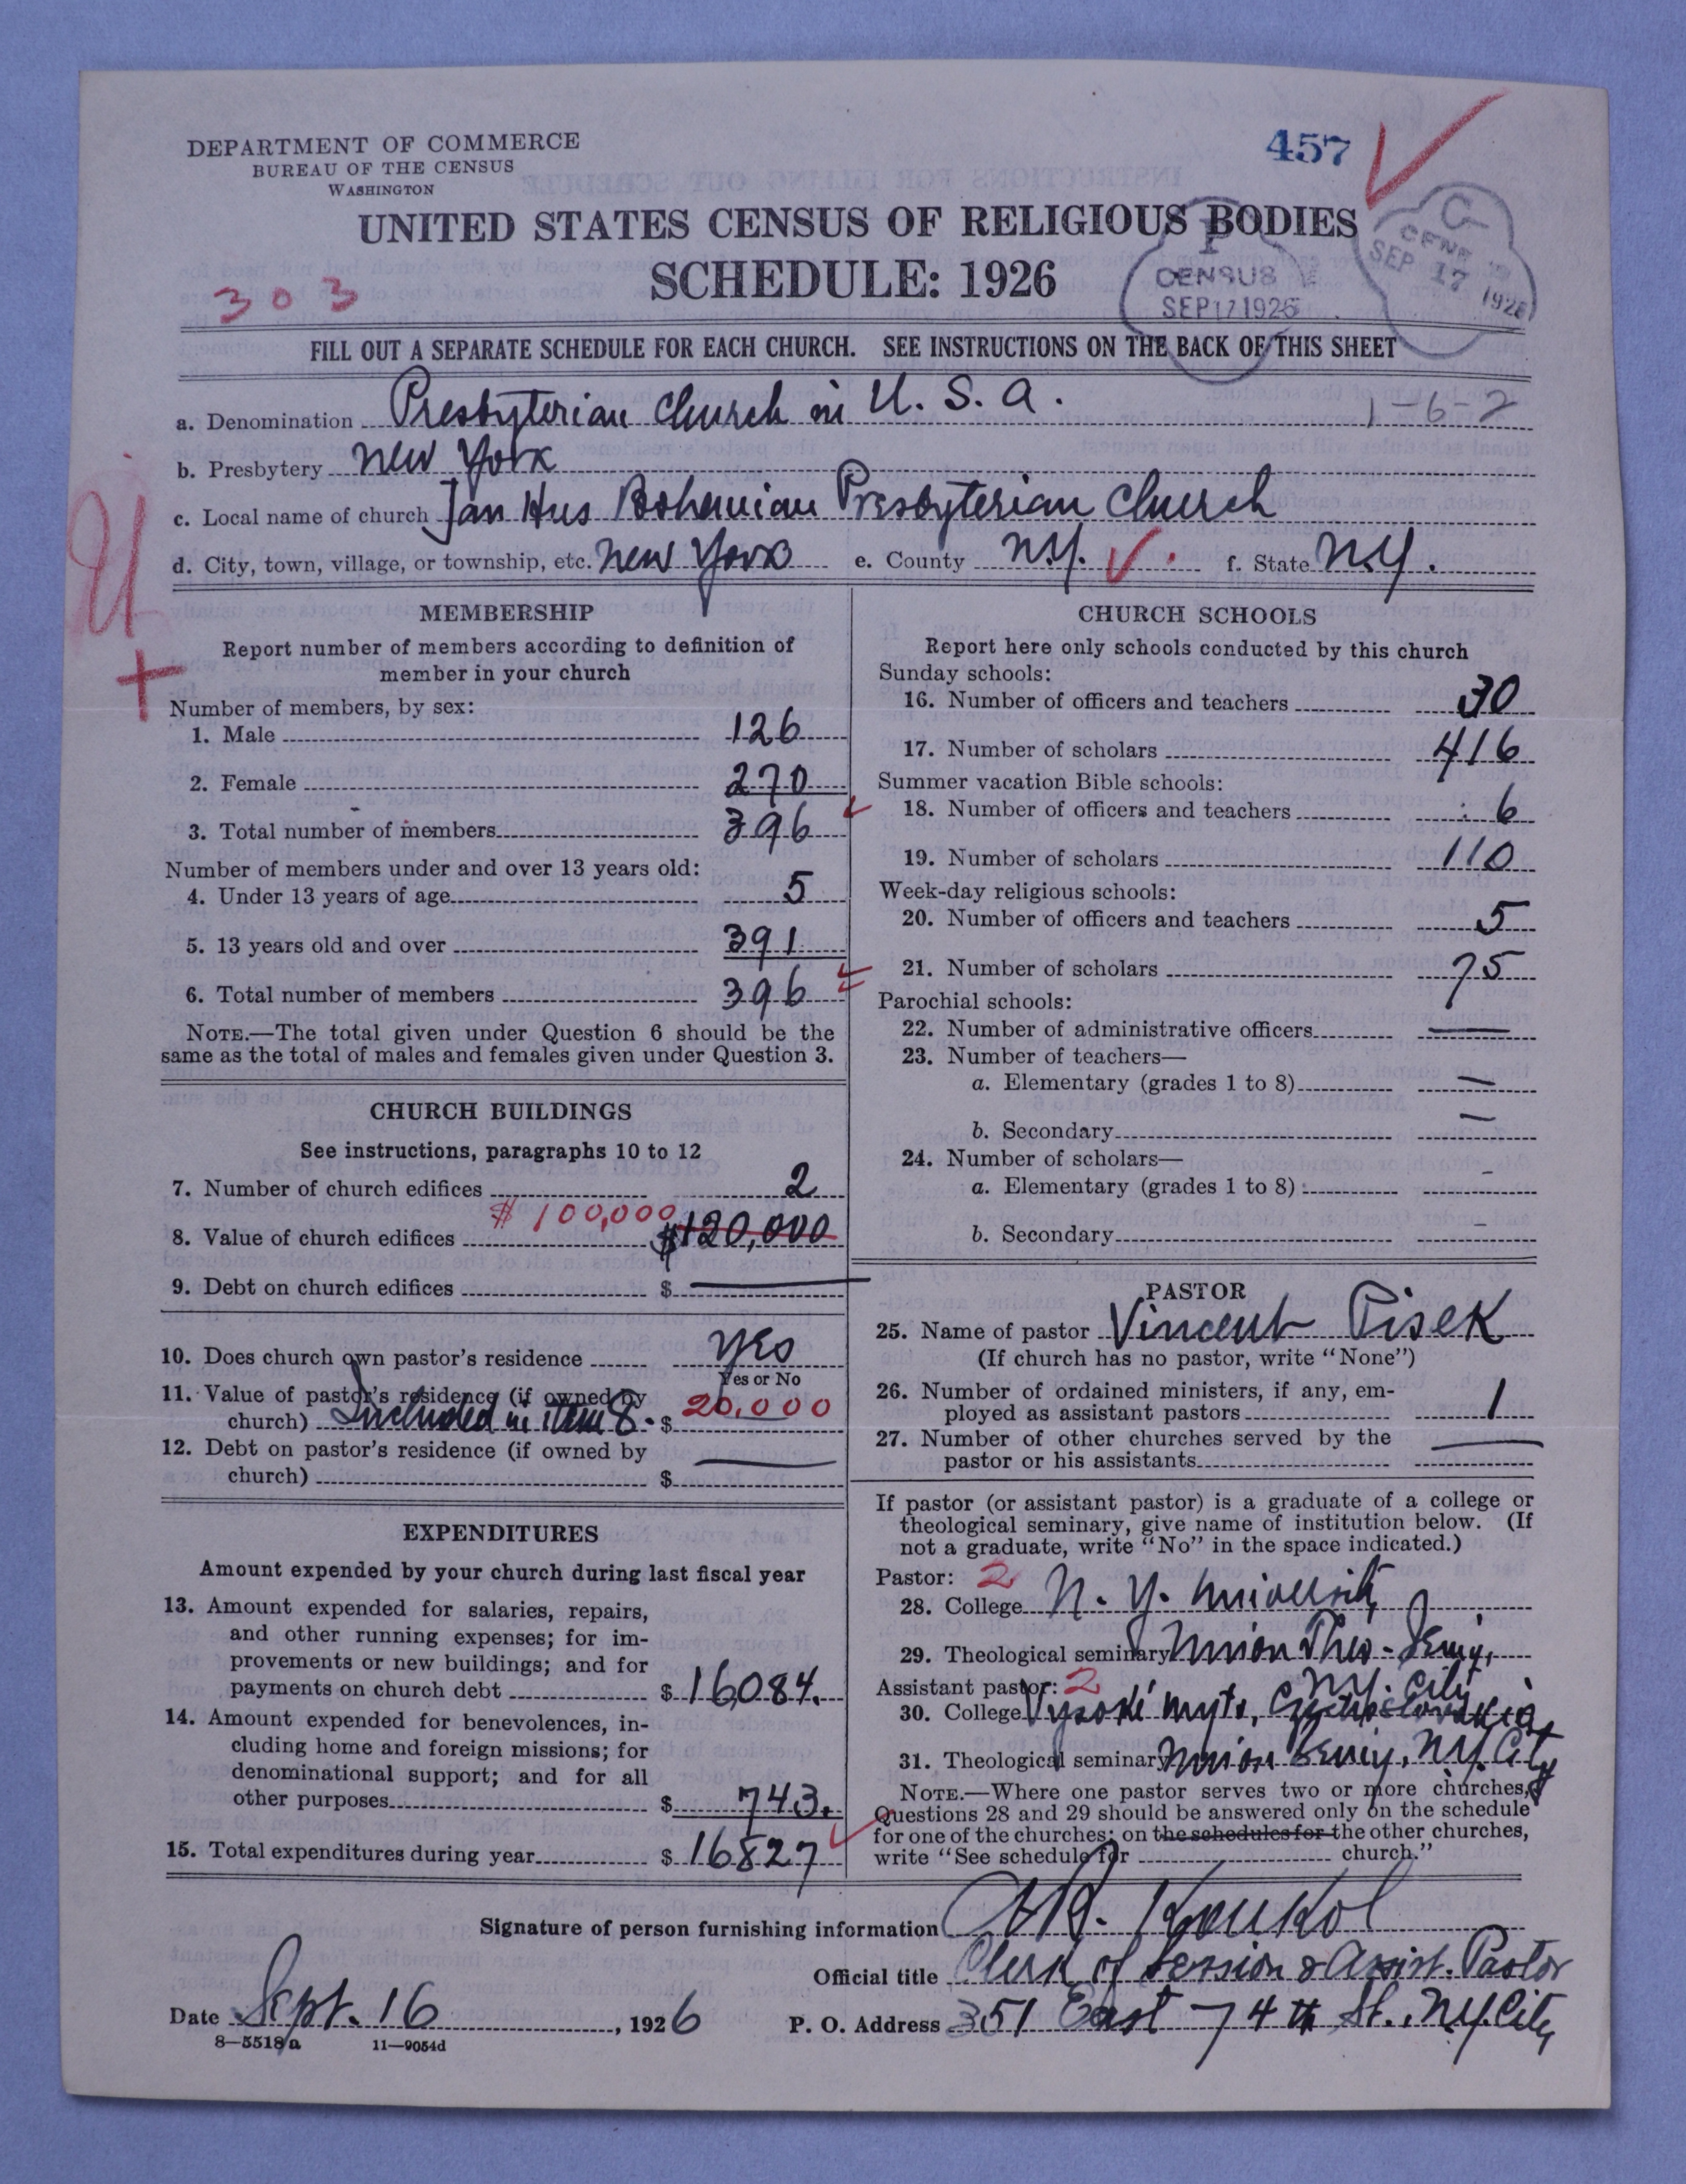 DEPARTMENT OF COMMERCE
BUREAU OF THE CENSUS
WASHINGTON
457
UNITED STATES CENSUS OF RELIGIOUS BODIES
SCHEDULE: 1926
303
P
CENSUS
SEP 17 1926
C
SEP 17 1926
FILL OUT A SEPARATE SCHEDULE FOR EACH CHURCH. SEE INSTRUCTIONS ON THE BACK OF THIS SHEET
a. Denomination Presbyterian Church in U. S. A. 1-6-2
b. Presbytery New York
c. Local name of church Jan Hus Bohemian Presbyterian Church
d. City, town, village, or township, etc. New York e. County N.Y. f. State N.Y.
MEMBERSHIP
Report number of members according to definition of
member in your church
Number of members, by sex:
1. Male 126
2. Female 270
3. Total number of members 396
Number of members under and over 13 years old:
4. Under 13 years of age 5
5. 13 years old and over 391
6. Total number of members 396
NOTE.—The total given under Question 6 should be the
same as the total of males and females given under Question 3.
CHURCH BUILDINGS
See instructions, paragraphs 10 to 12
7. Number of church edifices 2
$100,000
8. Value of church edifices $120,000
9. Debt on church edifices $ —
10. Does church own pastor's residence Yes
Yes or No
11. Value of pastor's residence (if owned by
church) Included in item 8. $ 20,000
12. Debt on pastor's residence (if owned by
church) $ —
EXPENDITURES
Amount expended by your church during last fiscal year
13. Amount expended for salaries, repairs,
and other running expenses; for im-
provements or new buildings; and for
payments on church debt $ 16,084.
14. Amount expended for benevolences, in-
cluding home and foreign missions; for
denominational support; and for all
other purposes $ 743.
15. Total expenditures during year $ 16827
CHURCH SCHOOLS
Report here only schools conducted by this church
Sunday schools:
16. Number of officers and teachers 30
17. Number of scholars 416
Summer vacation Bible schools:
18. Number of officers and teachers 6
19. Number of scholars 110
Week-day religious schools:
20. Number of officers and teachers 5
21. Number of scholars 75
Parochial schools:
22. Number of administrative officers —
23. Number of teachers—
a. Elementary (grades 1 to 8) —
b. Secondary —
24. Number of scholars—
a. Elementary (grades 1 to 8) -
b. Secondary -
PASTOR
25. Name of pastor Vincent Pisek
(If church has no pastor, write "None")
26. Number of ordained ministers, if any, em-
ployed as assistant pastors 1
27. Number of other churches served by the
pastor or his assistants —
If pastor (or assistant pastor) is a graduate of a college or
theological seminary, give name of institution below. (If
not a graduate, write "No" in the space indicated.)
Pastor: 2
28. College N. Y. University
29. Theological seminary Union Theo. Semy,
N.Y. City
Assistant pastor: 2
30. College Vysoké Myto, Czechoslovakia
31. Theological seminary Union Semy, N.Y. City
NOTE.—Where one pastor serves two or more churches,
Questions 28 and 29 should be answered only on the schedule
for one of the churches; on the schedules for the other churches,
write "See schedule for church."
Signature of person furnishing information Koukol
Official title Clerk of Session & Assist. Pastor
Date Sept. 16, 1926 P. O. Address 351 East 74th St., N.Y. City
8—5518a 11—9054d